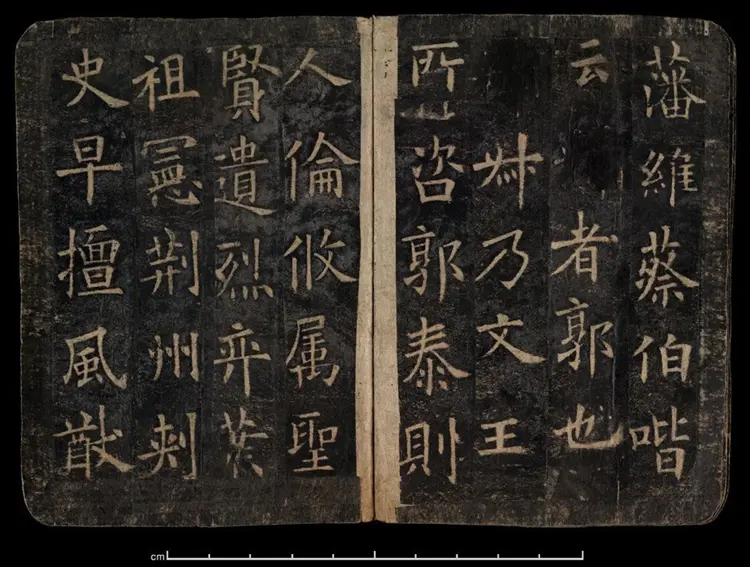 藩維蔡伯喈
云者郭也
叔乃文王
所咨郭泰則
人倫攸属聖
賢遺烈弈葉
祖憲荊州刾
史早擅風猷